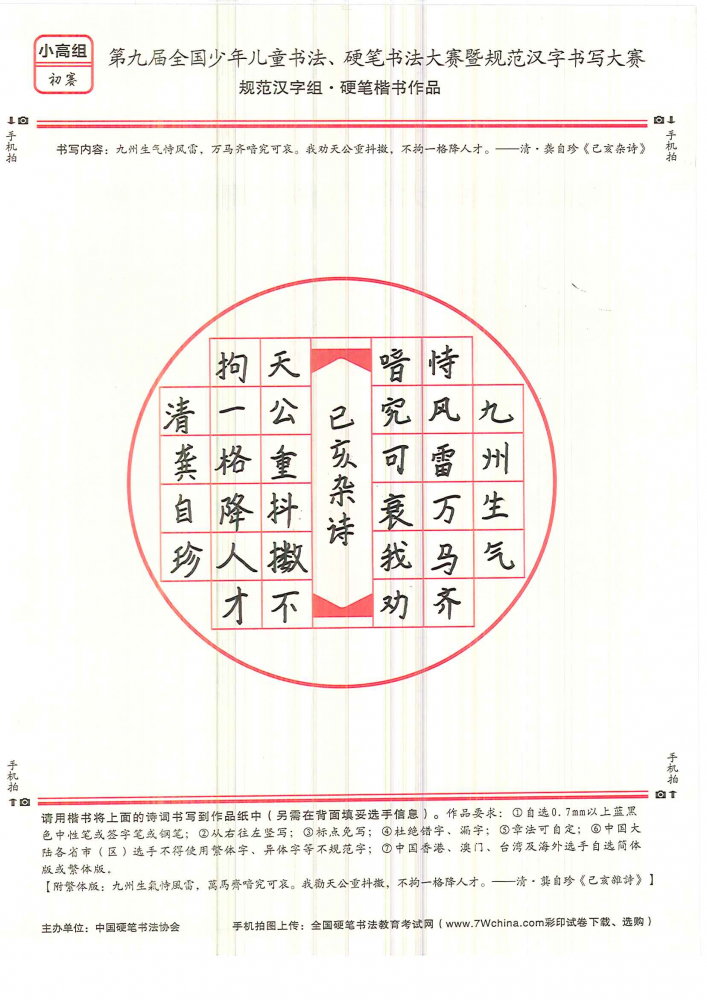 小高组
初赛
第九届全国少年儿童书法、硬笔书法大赛暨规范汉字书写大赛
规范汉字组·硬笔楷书作品
手机拍
手机拍
书写内容：九州生气恃风雷，万马齐喑究可哀。我劝天公重抖擞，不拘一格降人才。——清·龚自珍《己亥杂诗》
九州生气
恃风雷万马齐
喑究可衰我劝
己亥杂诗
天公重抖擞不
拘一格降人才
清龚自珍
手机拍
手机拍
请用楷书将上面的诗词书写到作品纸中（另需在背面填妥选手信息）。作品要求：①自选0.7mm以上蓝黑
色中性笔或签字笔或钢笔；②从右往左竖写；③标点免写；④杜绝错字、漏字；⑤章法可自定；⑥中国大
陆各省市（区）选手不得使用繁体字、异体字等不规范字；⑦中国香港、澳门、台湾及海外选手自选简体
版或繁体版。
【附繁体版：九州生氣恃風雷，萬馬齊喑究可哀。我勸天公重抖擻，不拘一格降人才。——清·龔自珍《己亥雜詩》】
主办单位：中国硬笔书法协会
手机拍图上传：全国硬笔书法教育考试网（www.7Wchina.com彩印试卷下载、选购）